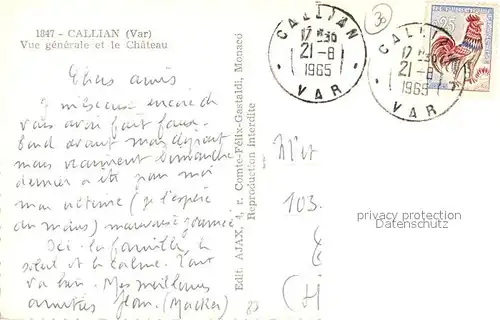 1847 - CALLIAN (Var)
Vue générale et le Château
Chers amis
vous avoir fait faux-
bond avant mon départ
mais vraiment Dimanche
dernier a été pour moi
mon ultime (j'espère
du moins) mauvaise journée
Ici la famille, le
soleil et le calme. Tout
va bien. Mes meilleures
amitiés
Edit. AJAX, 4, r. Comte-Félix-Gastaldi, Monaco
Reproduction interdite
CALLIAN
17 H 30
21-8
1965
VAR
CALLIAN
17 H 30
21-8
1965
VAR
0,25
30
103.
privacy protection
Datenschutz